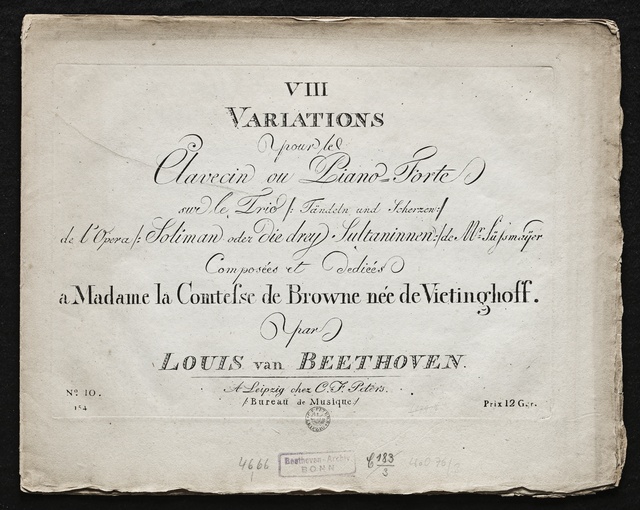 VIII
VARIATIONS
pour le
Clavecin ou Piano-Forte
sur le Trio /: Tändeln und Scherzen :/
de l'Opera /: Soliman oder die drey Sultaninnen :/ de Mr. Süſsmaÿer
Composées et Dediées
a Madame la Comteſse de Browne née de Vietinghoff.
par
LOUIS van BEETHOVEN.
A Leipzig chez C. F. Peters.
/ Bureau de Musique /
No. 10.
154
Prix 12 Ggr.
4666
Beethoven-Archiv
BONN
C 183
3